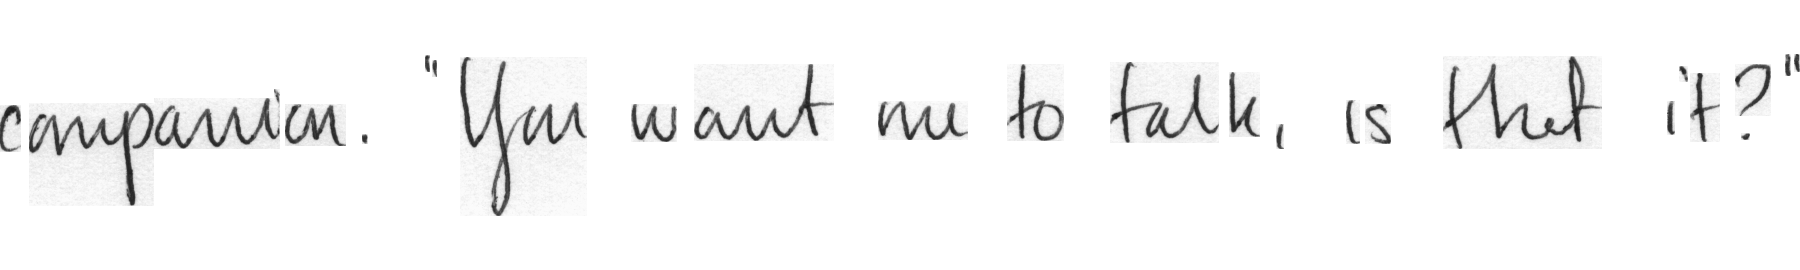 companion. "You want me to talk, is that it?"